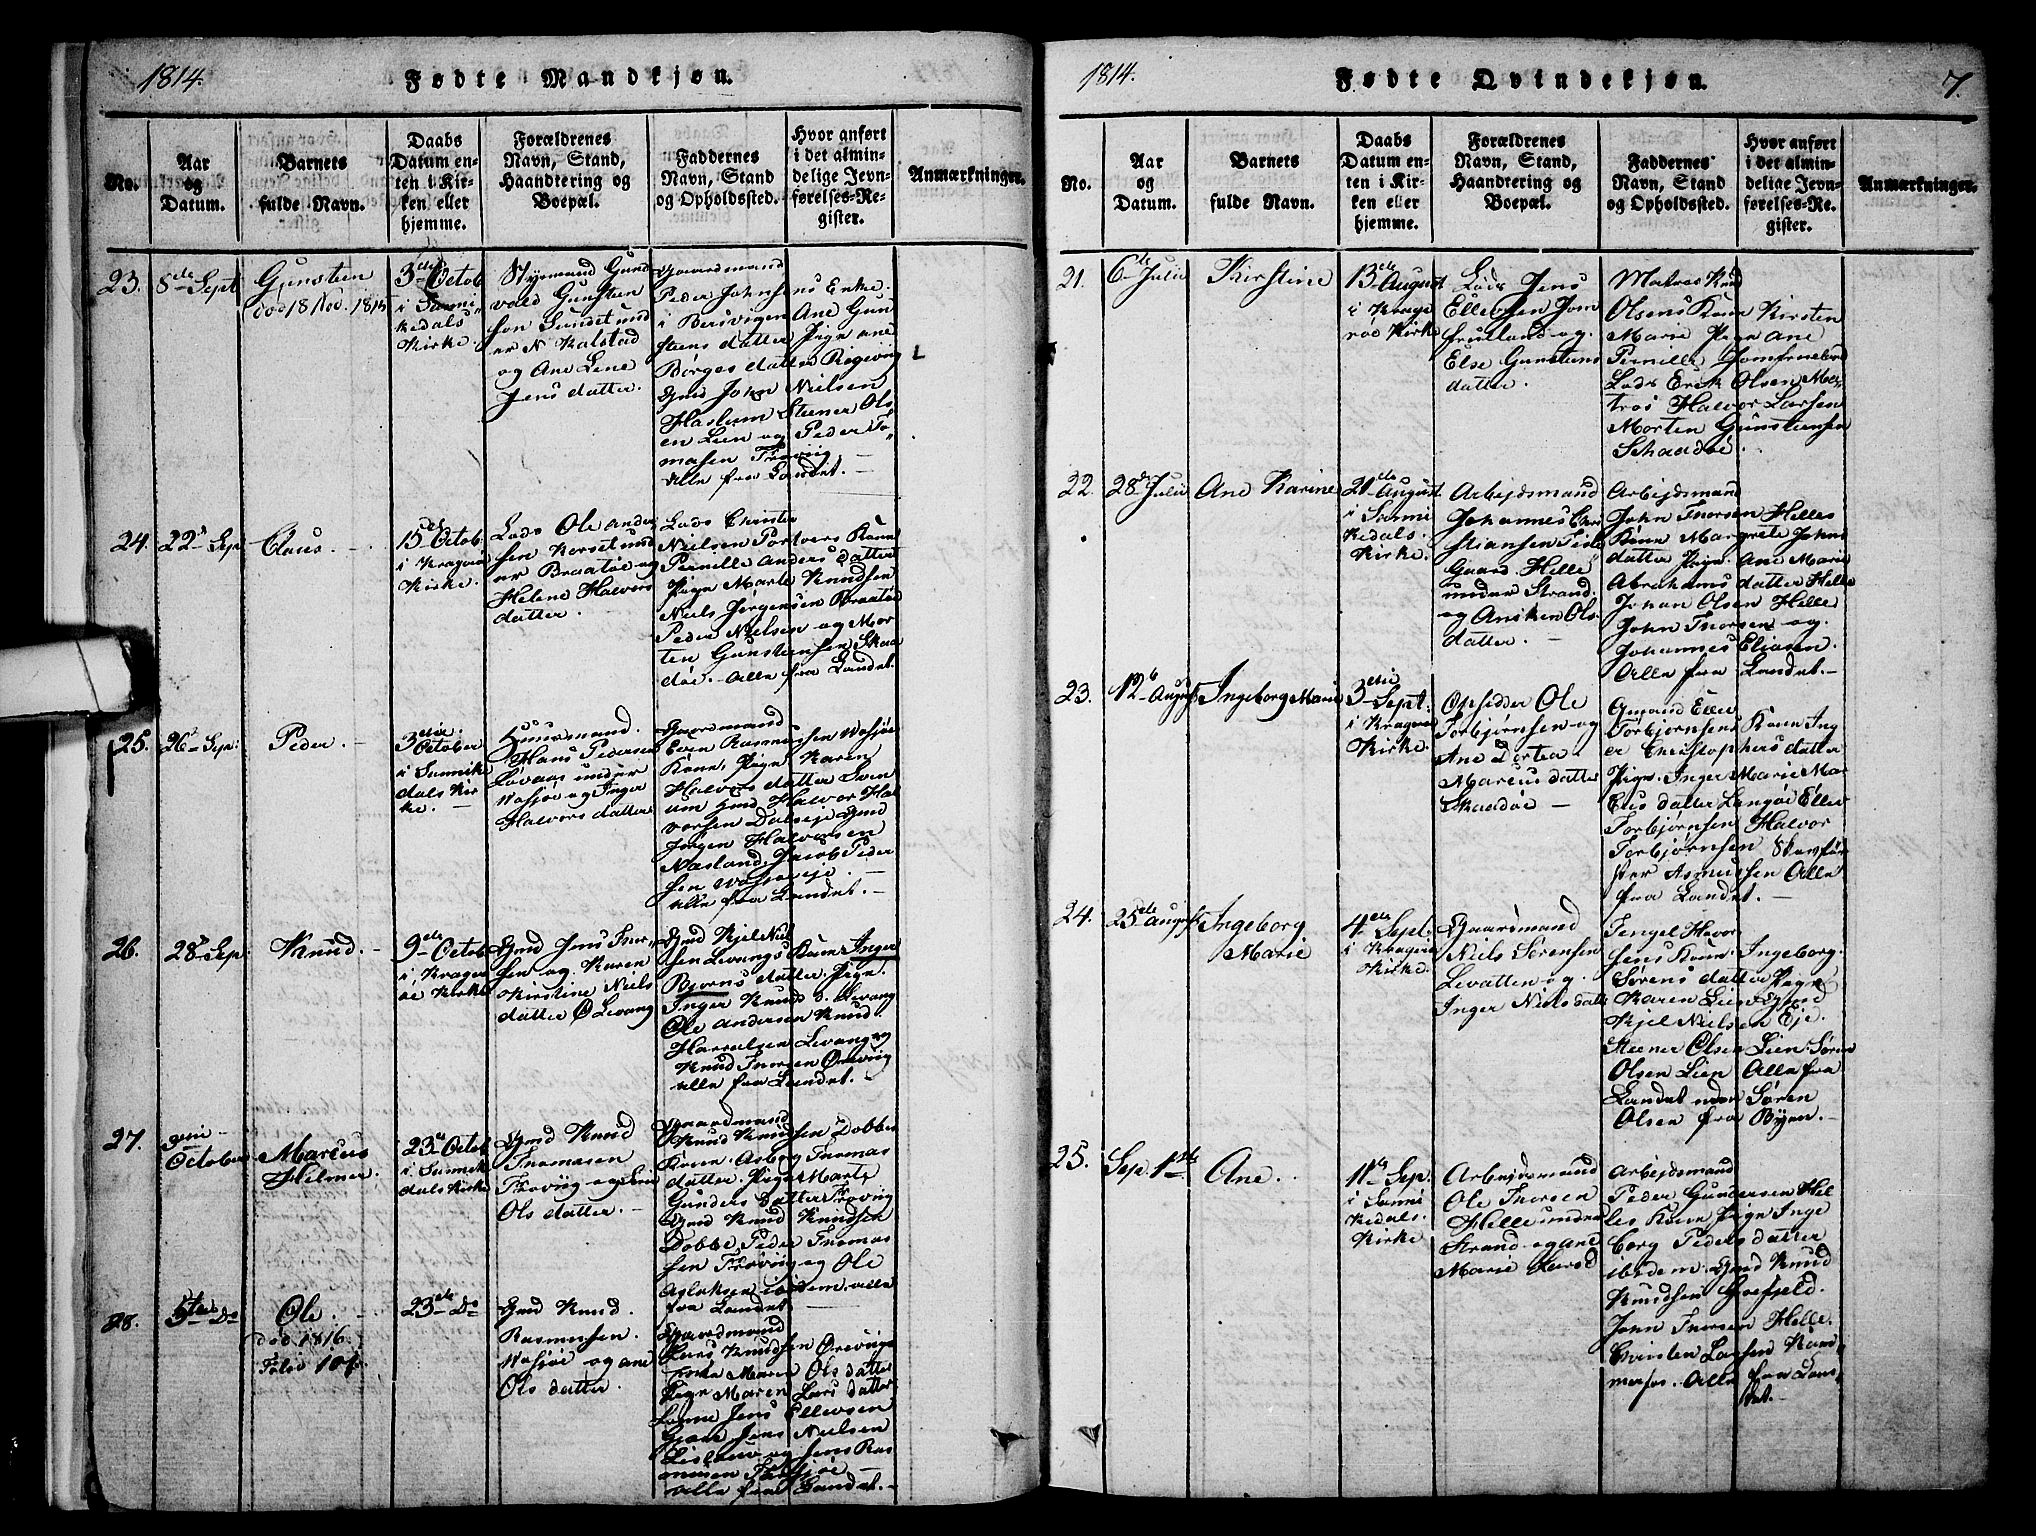 1814.
Fødte Mandkjøn.
No.
Aar
og
Datum.
Barnets
fulde Navn.
Daabs
Datum en-
ten i Kir-
ken eller
hjemme.
Forældrenes
Navn, Stand,
Haandtering og
Boepæl.
Faddernes
Navn, Stand
og Opholdssted.
Hvor anført
i det almin-
delige Jevn-
førelses-Re-
gister.
Anmærkninger.
23.
8de Sept
Gunsten
død 18 Nov. 1815
3die Octob
i Sanni
kedals
Kirke.
Styrmand Gund
vald Gunsten
sen Sundet und
er N Kalstad
og Ane Lene
Jens datter.
Gaardsmand
Peder Johnsens Enke
i Bersvigen Ane Gun
stens datter Pign ane
Børges datter Regeving
Gmd John Nielsen
Haslum Stener Ols
en Lien og Peder To
masen Froviig
alle fra Landet.
24.
22d Sep
Claus.
15de Octob
i Kragerø
Kirke.
Lods Ole Ander
sen Korset und
er Braatøe og
Helene Halvors
datter.
Lods Christen
Nielsen Portvers Kone
Pernille Anders datter
Pign Marte Knudsen
Niels Jørgensen Braatøe
Peder Nielsen og Mor
ten Gunstensen Skaa
døe. Alle fra Landet.
25.
26d Sep:
Peder.
3die
October
i Sannike
dals Kir
ke.
Huusmand.
Hans Pedersen
Løvaas under
Wasjøe og Inger
Halvors datter
Gaardsmand
Even Rasmussen Wasjøe
Kone, Pign Karen
Halvors datter Sven
um Gmd Halvor Hal
vorsen Dalseje Gmd
Jørgen Halvorsen
Nasland, Jacob Peder
sen Wasjøeeje.
Alle fra Landet.
26.
28d Sep
Knud.
9de Octob
i Krager
øe Kirke
Gmd Jens Thor
sen og Karen
Kirstine Niels
datter Ø Levang
Gmd Kjel Niel
sen Levangs Kone Inger
Bjørns datter, Pign
Inger Knuds d. Levang
Ole Andersen Knud.
Levang og
Knud Thorsen Ørevig
alle fra Landet.
27.
3die
October
Marcus
Hilmer.
23de Octob
i Sannike
dals Kirke
Gmd Knud
Thomasen
Froviig og Lene
Ols datter.
Gaardmand
Knud Knudsen Dobbe
Kone. Asborg Thomas
datter. Pige Marte
Gunders datter Froviig
Gmd Knud Knudsen
Dobbe Peder Thomas
sen Froviig og Ole
Aslaksen ibidem alle
fra Landet
28.
5te Do
Ole.
død 1816.
Folio 104
23de Do
Gmd Knud.
Rasmussen.
Wasjøe og ane
Ols datter.
Gaardmand
Lars Knudsen Ørevigs
Maren Ols datter
Pign Maren Lars datter
Jens Ellevsen
Jens Nielsen
og Jens Ras
musen
alle fra Landet.
1814.
Fødte Qvindekjøn.
7.
No.
Aar
og
Datum.
Barnets
fulde Navn.
Daabs
Datum en-
ten i Kir-
ken eller
hjemme.
Forældrenes
Navn, Stand,
Haandtering og
Boepæl.
Faddernes
Navn, Stand
og Opholdssted.
Hvor anført
i det almin-
delige Jevn-
førelses-Re-
gister.
Anmærkninger.
21.
6te Julii
Kirstine
13de August
i Krage
røe Kirke
Lods Jens
Ellevsen Jom
fruland og.
Else Gunstens
datter.
Matros Knud
Olsens Kone Kirsten
Marie Pign ane
Pernille Jomfruelan
Lods Erik Olsen Ma
tros Halvor Larsen
Morten Gunstensen
Schaadøe.
22.
28de Julii
Ane Karine
21de August
i Sanni
kedals.
Kirke.
Arbejdsmand
Johannes Chri
stiansen Fiske
Gaard. Helle
under Strand.
og Aniken Ols
datter.
Arbejdsmand
John Thorsen Helles
Kone Margrete Johns
datter Pign. Ane Marie
Abrehams datter Helle
Johan Olsen Helle
John Thorsen og.
Johannes Eliasen.
Alle fra Landet.
23.
12te August
Ingeborg Marie
3die
Sept:
i Kragerøe
Kirke
Opsidder Ole
Torbjørnsen og
Ane Dortea
Marcus datter
Skaadøe
Gmand Ellev
Torbjørnsens Kone Ing
er Christophers datter
Pign. Inger Marie Mar
cus datter Langøe Ellev
Torbjørnsen Halvor
Torbjørnsen Skovfør
ster Asmussen Alle
fra Landet.
24.
25de August
Ingeborg
Marie
4de Sept.
i Kragerø
Kirke.
Gaardmand
Niels Sørensen
Levatten og.
Inger Niels datt
Tengel Havor
sens Kone. Ingeborg.
Sørens datter Pign
Karen Lien Gmd
Kjel Nielsen Eje.
Steener Olsen Lien. Søren
Olsen Lien Alle fra
Landet men Søren
Olsen fra Byen.
25.
Sep. 1ste
Ane.
11te Sep.
i Sanni
kedals.
Kirke
Arbejdsmand
Ole Thorsen
Helle under
Strand og ane
Marie
Arbejdsmand
Peder Gundersen Hel
les Kone Pign Inge
borg Peders datter
ibidem. Gmd Knud
Knudsen Goefjeld.
John Thorsen Helle.
Christen Larsen Kam
merfos. Alle fra Lan
det.